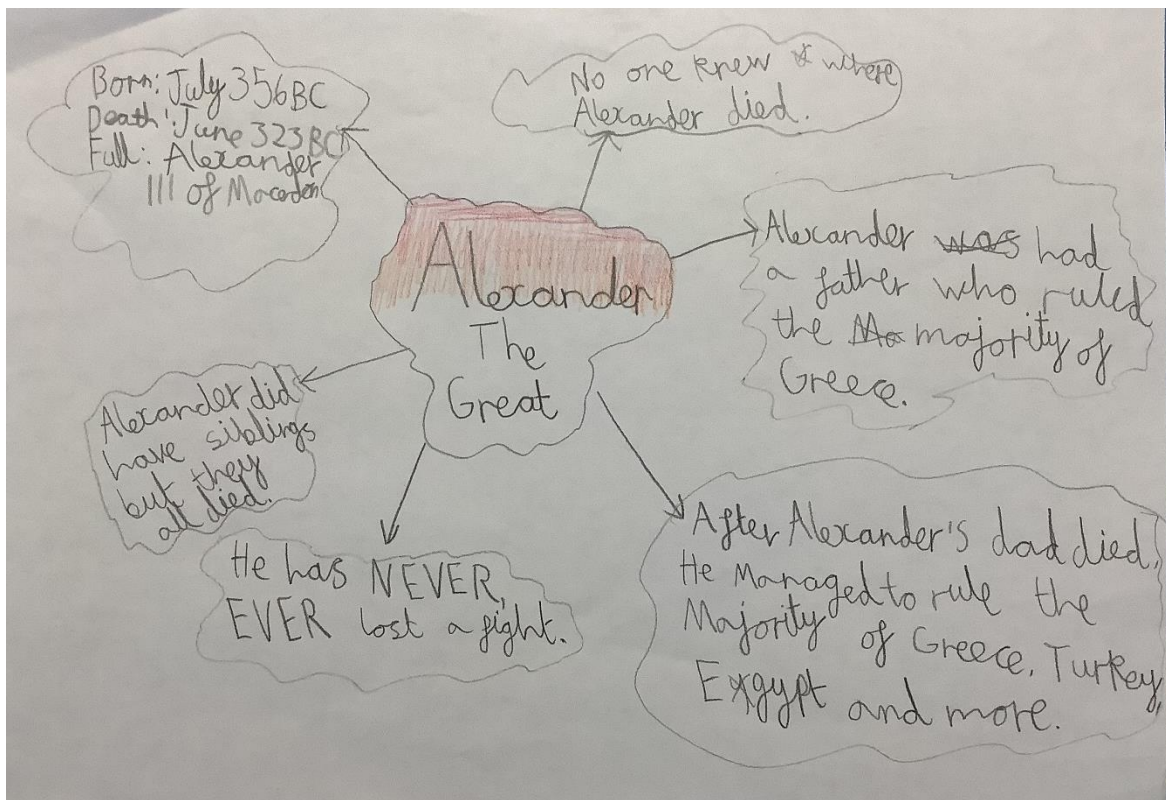 Born: July 356BC
Death: June 323BC
Full: Alexander
III of Macedon
No one knew where
Alexander died.
Alexander
The
Great
Alexander was had
a father who ruled
the Ma majority of
Greece.
Alexander did
have siblings
but they
all died.
He has NEVER,
EVER lost a fight.
After Alexander's dad died,
He Managed to rule the
Majority of Greece, Turkey,
Exgypt and more.